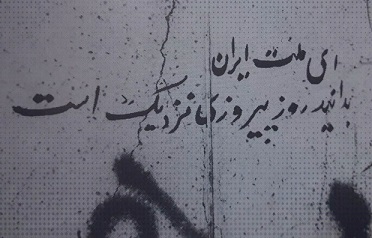 ای ملت ایران
بدانید روز پیروزی ما نزدیک است